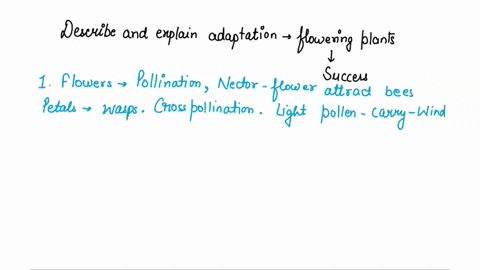 Describe and explain adaptation → flowering plants
↓
Success
1. Flowers → Pollination, Nector-flower attract bees
Petals → wasps. Cross pollination. Light pollen - carry - wind